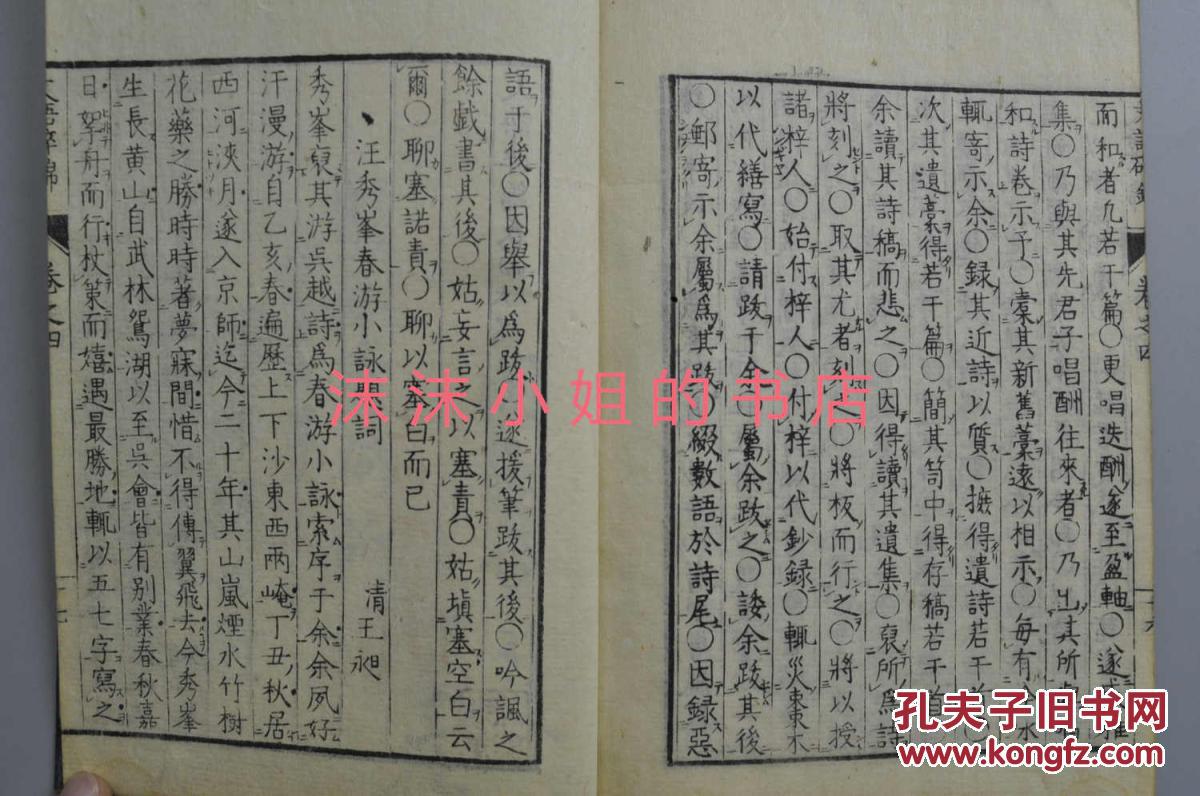 而和者九若干篇○更唱迭酬遂至盈軸○遂
集○乃與其先君子唱酬往來者○乃出其所
和詩卷示予○槖其新舊藁遠以相示○每有
輒寄示余○録其近詩以質○摭得遺詩若干
次其遺藁得若干篇○簡其笥中得存稿若干首
余讀其詩稿而悲之○因得讀其遺集○裒所爲詩
將刻之○取其尤者刻○將板而行之○將以授
諸梓人○始付梓人○付梓以代鈔録○輒災棗東不
以代繕寫○請跋于余○屬余跋之○諉余跋其後
○郵寄示余屬爲其跋○綴數語於詩尾○因録惡
語于後○因舉以爲跋○遂援筆跋其後○吟諷之
餘戯書其後○姑妄言之以塞責○姑塡塞空白云
爾○聊塞諾責○聊以塞白而已
汪秀峯春游小詠題詞
清王昶
秀峯裒其游吳越詩爲春游小詠索序于余余夙好
汗漫游自乙亥春遍歷上下沙東西兩崦丁丑秋居
西河浹月遂入京師迄今二十年其山嵐煙水竹樹
花藥之勝時時著夢寐間惜不得傅翼飛去今秀峯
生長黄山自武林鴛湖以至吳會皆有别業春秋嘉
日拏舟而行杖策而嬉遇最勝地輒以五七字寫之
卷之四
沫沫小姐的书店
孔夫子旧书网
www.kongfz.com